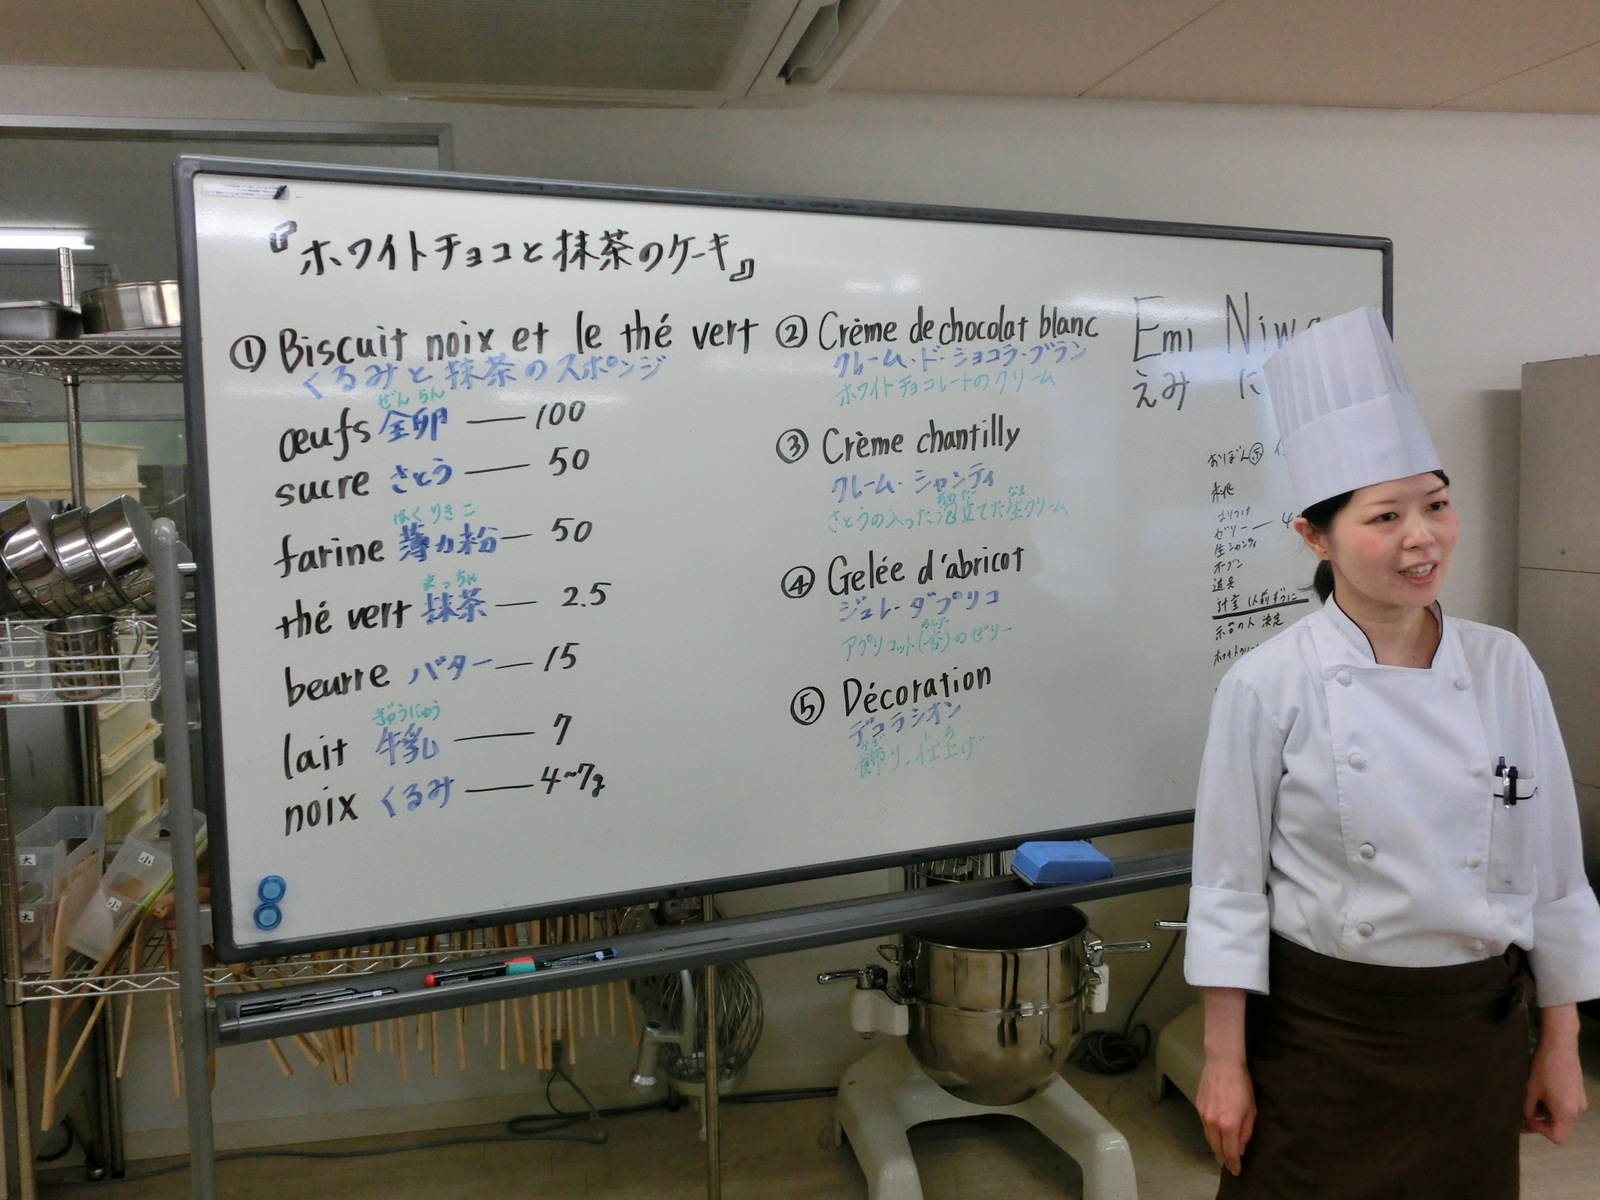 『ホワイトチョコと抹茶のケーキ』
① Biscuit noix et le thé vert
くるみと抹茶のスポンジ
ぜんらん
œufs 全卵 — 100
sucre さとう — 50
はくりきこ
farine 薄力粉 — 50
まっちゃ
thé vert 抹茶 — 2.5
beurre バター — 15
ぎゅうにゅう
lait 牛乳 — 7
noix くるみ — 4~7g
② Crème de chocolat blanc
クレーム・ド・ショコラ・ブラン
ホワイトチョコレートのクリーム
③ Crème chantilly
クレーム・シャンティ
あわだ なま
さとうの入った泡立てた生クリーム
④ Gelée d'abricot
ジュレ・ダブリコ
あんず
アプリコット(杏)のゼリー
⑤ Décoration
デコラシオン
かざ しあ
飾り、仕上げ
Emi Niwa
えみ に
おぼん
ゼリー — 4
生シャンティ
オーブン
道具
計量 1人前ずつに
決定
大
小
大
小